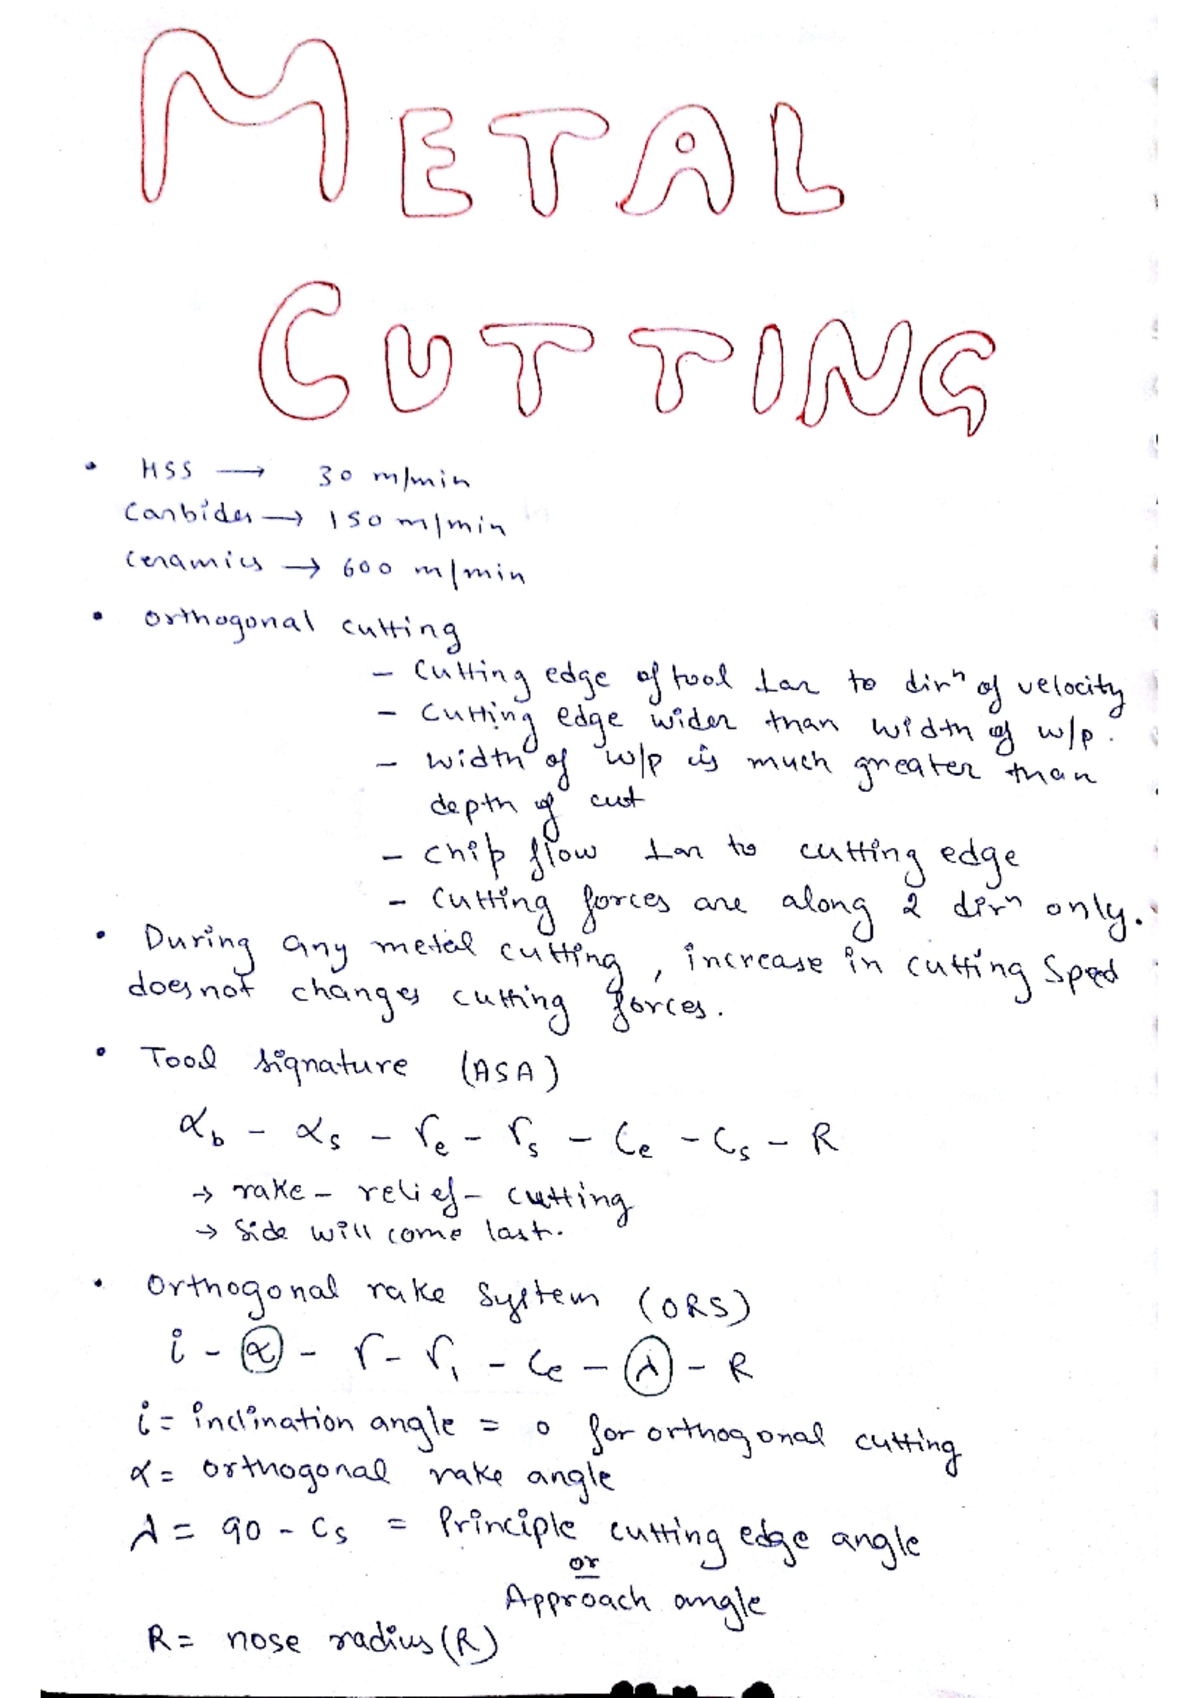 METAL
CUTTING
• HSS → 30 m/min
Carbides → 150 m/min
Ceramics → 600 m/min
• Orthogonal cutting
- Cutting edge of tool ⊥ar to dirⁿ of velocity
- Cutting edge wider than width of w/p.
- width of w/p is much greater than
depth of cut
- chip flow ⊥ar to cutting edge
- Cutting forces are along 2 dirⁿ only.
• During any metal cutting, increase in cutting speed
does not changes cutting forces.
• Tool signature (ASA)
α_b - α_s - r_e - r_s - C_e - C_s - R
→ rake - relief - cutting
→ Side will come last.
• Orthogonal rake system (ORS)
i - α - r - r₁ - C_e - λ - R
i = inclination angle = 0 for orthogonal cutting
α = orthogonal rake angle
λ = 90 - C_s = Principle cutting edge angle
or
Approach angle
R = nose radius (R)